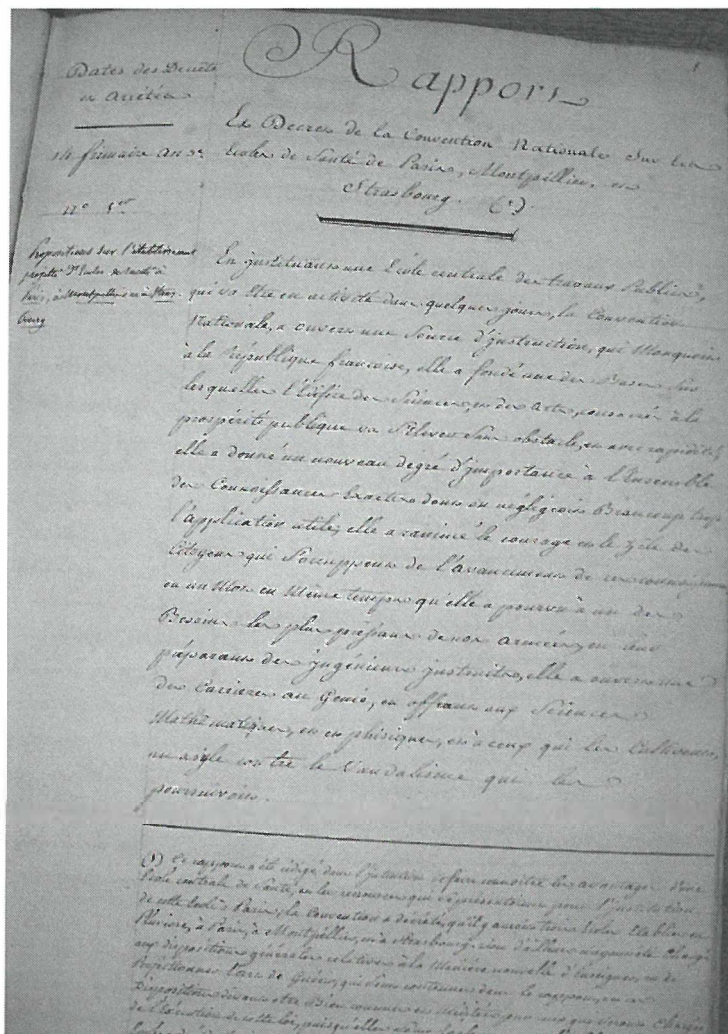 Rapport
1
Dates des Decrets
et Arrêtés
Et Decret de la Convention Nationale sur les
14 frimaire an 3e
Ecoles de Santé de Paris, Montpellier, et
Strasbourg. (1)
N° 1er
Propositions sur l'établissement
projetté d'Ecoles de santé à
Paris, à Montpellier et à Stras-
bourg
En instituant une Ecole centrale des travaux Publics,
qui va être en activité dans quelques jours, la Convention
Nationale, a ouvert une Source d'instruction, qui Manquoit
à la République françoise, elle a fondé une des Bases sur
lesquelles l'Edifice des Sciences, et des Arts, consacrés à la
prospérité publique va s'élever sans obstacle, et avec rapidité;
elle a donné un nouveau degré d'importance à l'Ensemble
des Connoissances Exactes dont on négligeoit Beaucoup trop
l'application utile; elle a ranimé le courage et le zèle des
Citoyens qui s'occuppent de l'avancement de ces connoissances
en même temps qu'elle a pourvu à un des
Besoins les plus pressans de nos armées, en leur
préparant des ingenieurs instruits, elle a ouvert une
des Carrieres au Genie, en offrant aux Sciences
Mathématiques, et en phisique, et à ceux qui les Cultivent,
un azyle contre le Vandalisme qui les
poursuivoit.
(1) Ce rapport a été rédigé dans l'intention de faire connoitre les avantages d'une
Ecole centrale de Santé, et les ressources que se présentoient pour l'institution
de cette Ecole à Paris; la Convention a décrété, qu'il y auroit trois Ecoles Etablies
à Paris, à Montpellier, et à Strasbourg: rien d'ailleurs n'a été changé
aux dispositions générales relatives à la Manière nouvelle d'enseigner, et de
Perfectionner l'art de Guérir, qui sont contenues dans le rapport, et ces
Dispositions doivent être bien connues et méditées par ceux qui seront chargés
de l'Exécution de cette loi, puisqu'elles